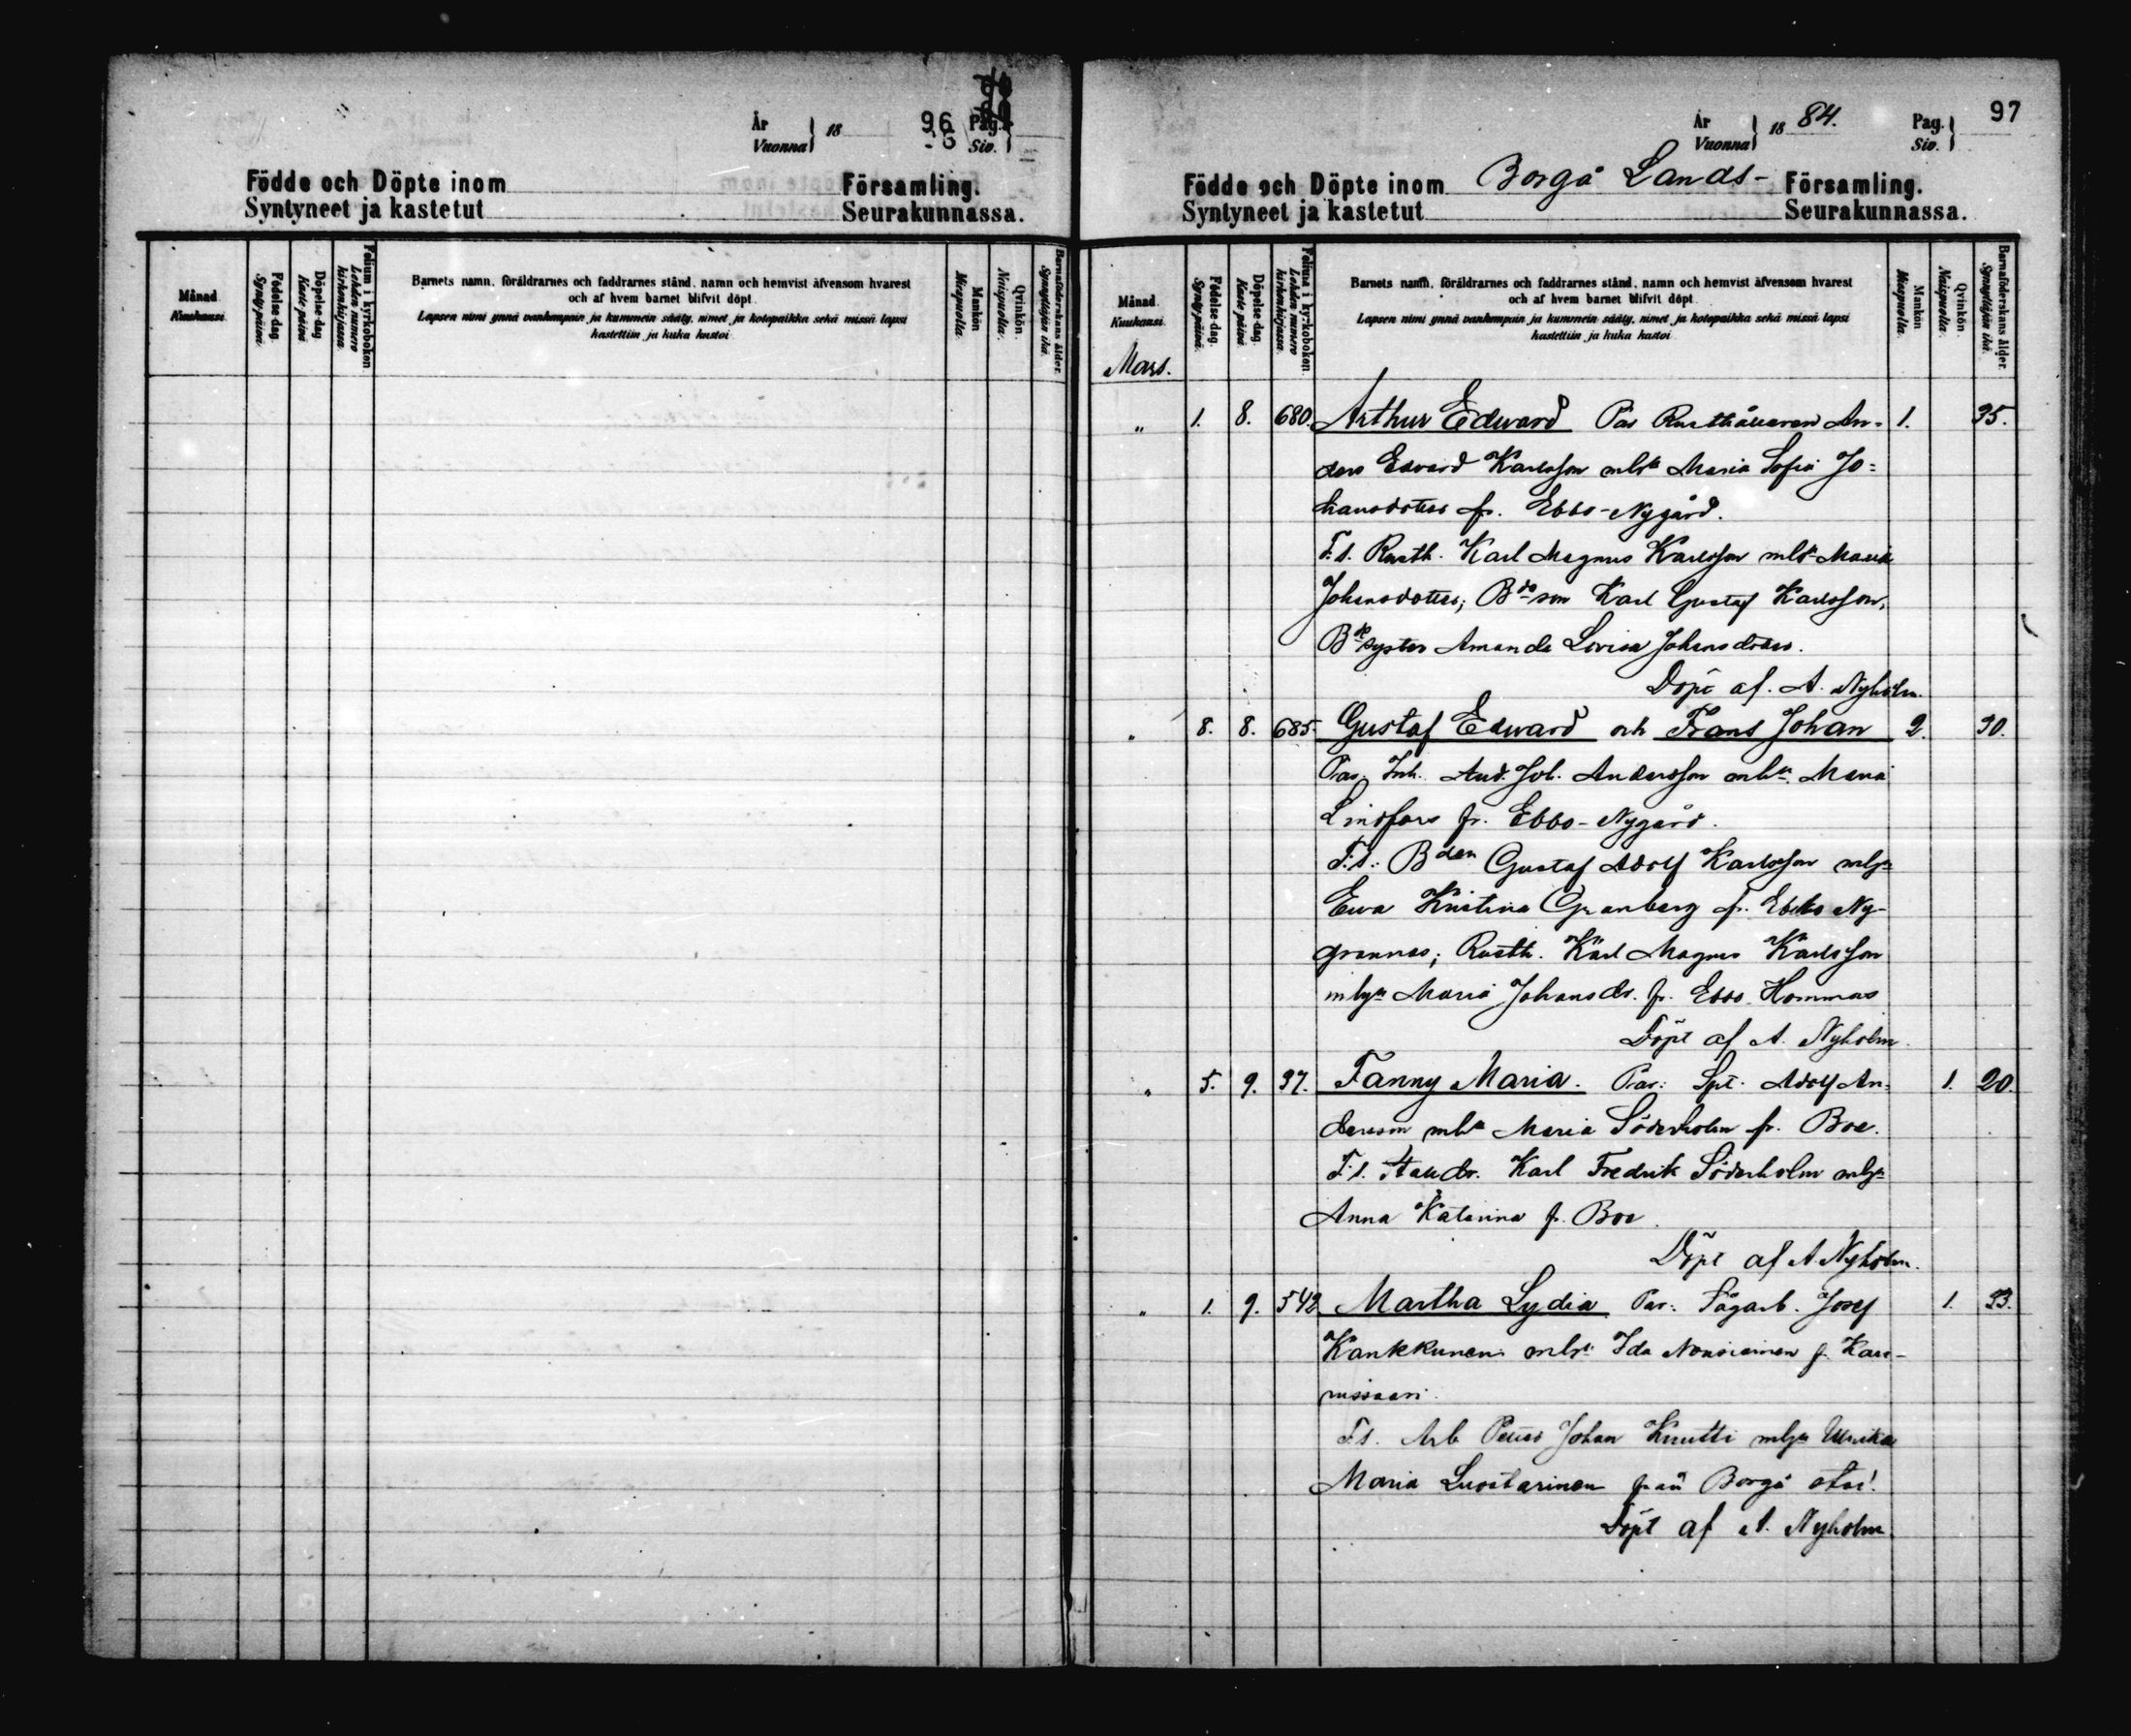 År
Vuonna
18
96
Pag.
Siv.
Födde och Döpte inom
Församling.
Syntyneet ja kastetut
Seurakunnassa.
Månad.
Kuukausi.
Födelse-dag.
Synty-päivä.
Döpelse-dag.
Kaste-päivä.
Folium i kyrkoboken.
Lehden numero kirkonkirjassa.
Barnets namn, föräldrarnes och faddrarnes stånd, namn och hemvist äfvensom hvarest
och af hvem barnet blifvit döpt.
Lapsen nimi ynnä vanhempain ja kummein sääty, nimet ja kotopaikka sekä missä lapsi
kastettiin ja kuka kastoi
Mankön
Miespuolta.
Qvinkön.
Naispuolta.
Barnaföderskans ålder.
Synnyttäjän ikä.
År
Vuonna
1884.
Pag.
Siv.
97
Födde och Döpte inom Borgå Lands- Församling.
Syntyneet ja kastetut
Seurakunnassa.
Månad.
Kuukausi.
Födelse-dag.
Synty-päivä.
Döpelse-dag.
Kaste-päivä.
Folium i kyrkoboken.
Lehden numero kirkonkirjassa.
Barnets namn, föräldrarnes och faddrarnes stånd, namn och hemvist äfvensom hvarest
och af hvem barnet blifvit döpt.
Lapsen nimi ynnä vanhempain ja kummein sääty, nimet ja kotopaikka sekä missä lapsi
kastettiin ja kuka kastoi
Mankön
Miespuolta.
Qvinkön.
Naispuolta.
Barnaföderskans ålder.
Synnyttäjän ikä.
Mars.
„ 1. 8. 680. Arthur Edward Par Rusthållaren An= 1. 35.
ders Edvard Karlsson mlst Maria Sofia Jo=
hansdotter fr. Ebbo-Nygård.
F.t. Rusth. Karl Magnus Karlsson mlst Maria
Johansdotter; Bdeson Karl Gustaf Karlsson,
Bdesyster Amanda Lovisa Johansdotter.
Döpt af. A. Nyholm.
„ 8. 8. 685. Gustaf Edward och Frans Johan 2. 30.
Par. Inh. And. Joh. Andersson mhu Maria
Lindfors fr. Ebbo-Nygård.
F.t.: Bden Gustaf Adolf Karlsson mlga
Ewa Kristina Granberg fr. Ebbo Ny-
grannas; Rusth. Karl Magnus Karlsson
mlga Maria Johansdr. fr. Ebbo Hommas
Döpt af A. Nyholm.
„ 5. 9. 37. Fanny Maria. Par: Spt. Adolf An= 1. 20.
dersson mhu Maria Söderholm fr. Boe.
F.t. Karl Fredrik Söderholm mlga
Anna Katarina fr. Boe.
Döpt af A. Nyholm.
„ 1. 9. 542 Martha Lydia Par: Sågarb. Josef 1. 33.
Kankkunen mlst Ida Nousiainen f.
F.t. Arb Petter Johan Knutti mlga Ulrika
Maria Luostarinen från Borgå stad!
Döpt af A. Nyholm.